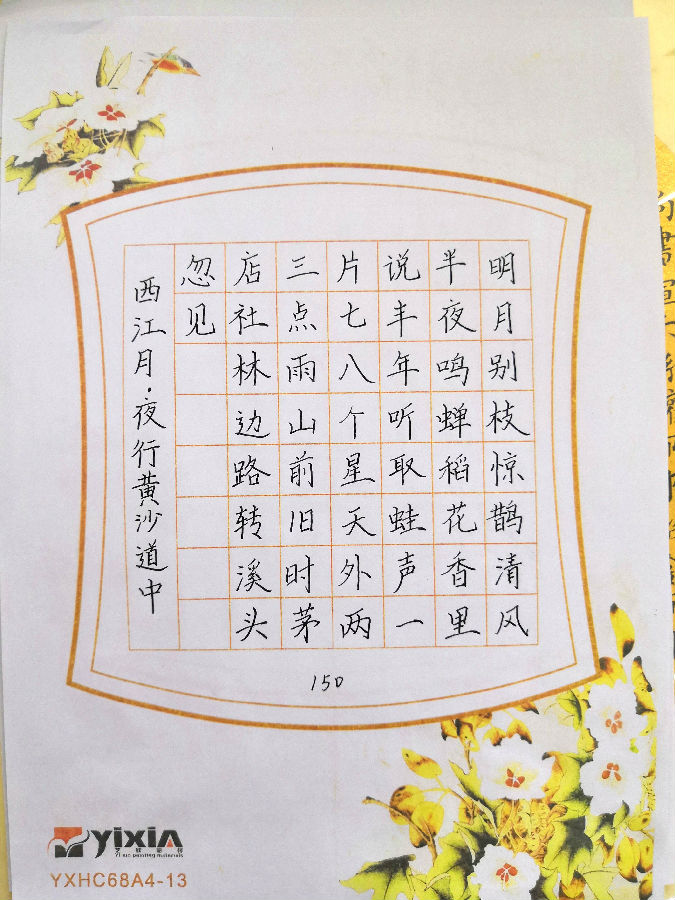 明月别枝惊鹊清风
半夜鸣蝉稻花香里
说丰年听取蛙声一
片七八个星天外两
三点雨山前旧时茅
店社林边路转溪头
忽见
西江月·夜行黄沙道中
150
yixin
Yi xin painting materials
YXHC68A4-13